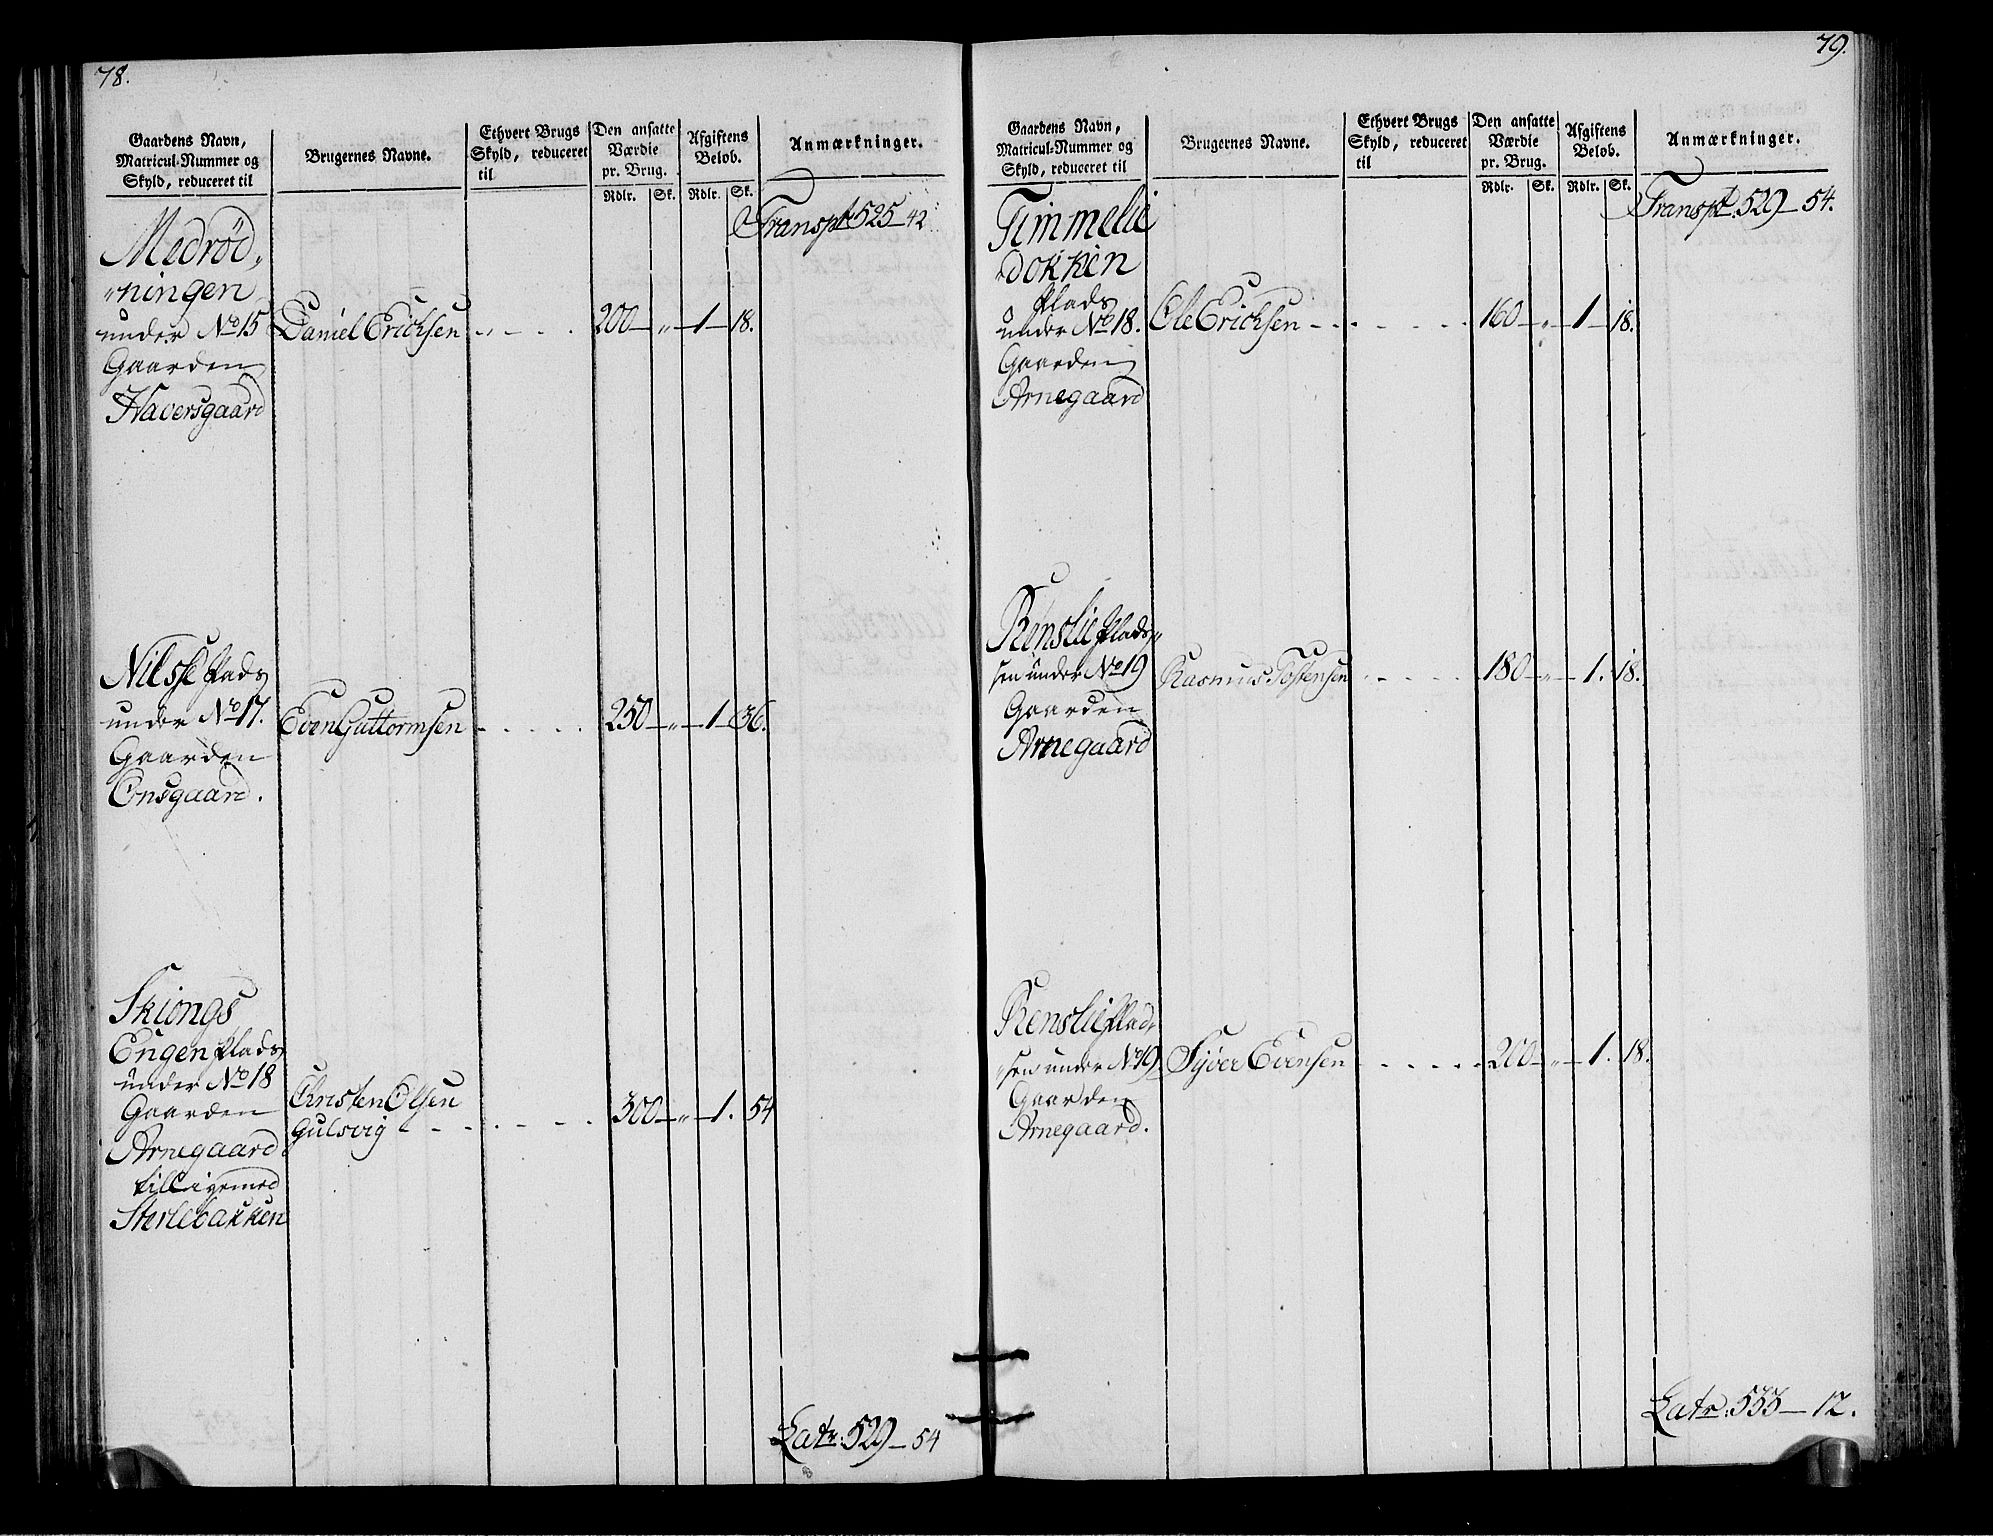 78.
Gaardens Navn,
Matricul-Nummer og
Skyld, reduceret til
Brugernes Navne.
Ethvert Brugs
Skyld, reduceret
til
Den ansatte
Værdie
pr. Brug.
Rdlr. Sk.
Afgiftens
Beløb.
Rdlr. Sk.
Anmærkninger.
Transpt 525–42
Medrød„
„ningen
under No 15 Daniel Erichsen „ . . . 200 – „ – 1 – 18.
Gaarden
Haversgaard
Nilsse Plads
under No 17. Even Guttormsen . . . . . 250 – „ – 1 – 36.
Gaarden
Onsgaard.
Skiongs
Engen Plads
under No 18
Gaarden
Christen Olsen
Gulsvig . . . . . . 300 – „ – 1. 54
Arnegaard.
tilligemed
Sterlebakken
Latr: 529 – 54
79.
Gaardens Navn,
Matricul-Nummer og
Skyld, reduceret til
Brugernes Navne.
Ethvert Brugs
Skyld, reduceret
til
Den ansatte
Værdie
pr. Brug.
Rdlr. Sk.
Afgiftens
Beløb.
Rdlr. Sk.
Anmærkninger.
Transpt. 529 – 54.
Timmelie
„dokken
Plads
under No 18. Ole Erichsen . . . . . . 160 – „ – 1 – 18.
Gaarden
Arnegaard
Renslie Plads„
sen under No 19 Rasmus Tostensen . . . . . 180 – „ – 1. 18.
Gaarden
Arnegaard
Renslie Plad„
„sen under No 19 Syver Evensen . . . . . 200 – „ – 1. 18.
Gaarden
Arnegaard.
Latr: 533 – 12.